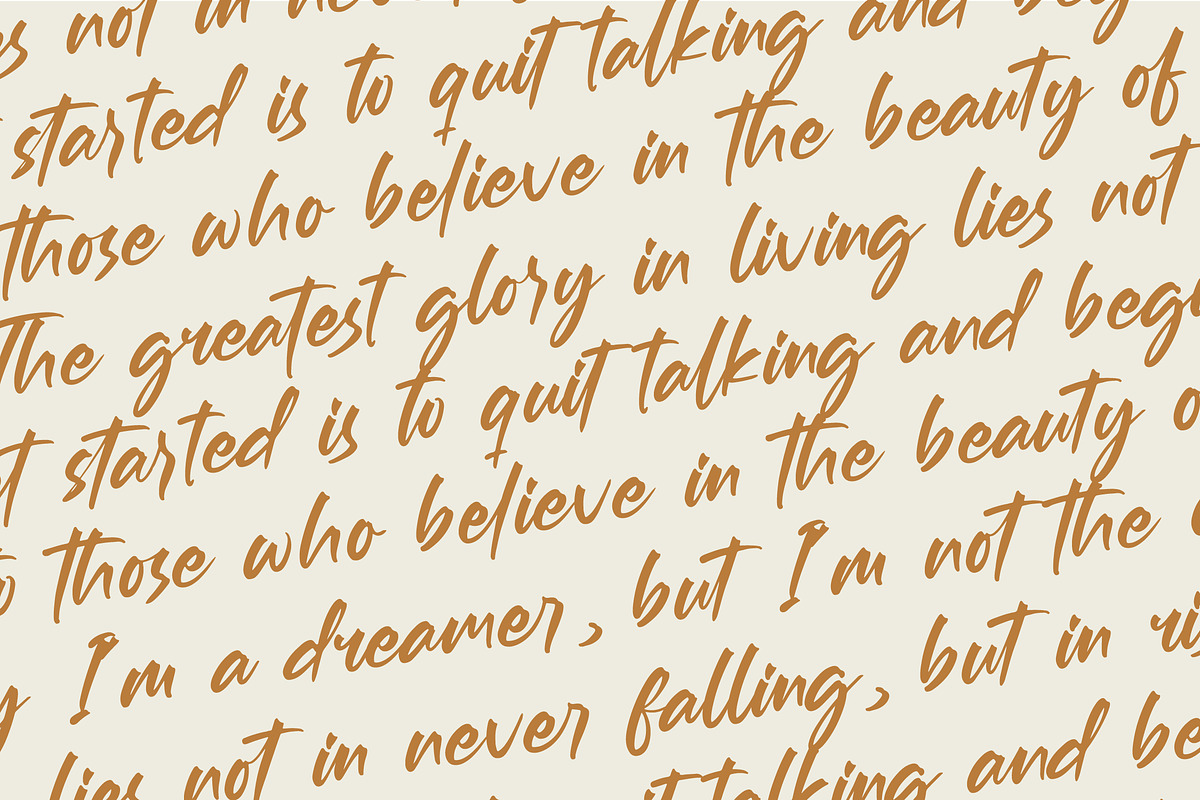 not in
started is to quit talking and beg
those who believe in the beauty of
The greatest glory in living lies not
started is to quit talking and begi
those who believe in the beauty o
I'm a dreamer, but I'm not the
lies not in never falling, but in ri
talking and be